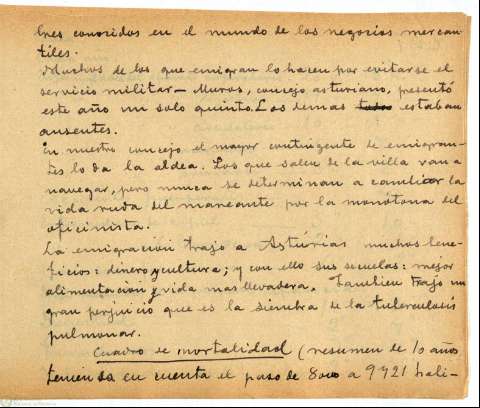 bres conocidos en el mundo de los negocios mercan-
tiles.
Muchos de los que emigran lo hacen por evitarse el
servicio militar - Muros, concejo asturiano, presentó
este año un solo quinto. Los demas estaban
ausentes.
En nuestro concejo el mayor contingente de emigran-
tes lo da la aldea. Los que salen de la villa van a
navegar, pero nunca se determinan a cambiar la
vida ruda del mareante por la monotona del
oficinista.
La emigración trajo a Asturias muchos bene-
ficios: dinero y cultura; y con ello sus secuelas: mejor
alimentación y vida mas llevadera. Tambien trajo un
gran perjuicio que es la siembra de la tuberculosis
pulmonar.
Cuadro de mortalidad (resumen de 10 años
teniendo en cuenta el paso de 8000 a 9921 habi-